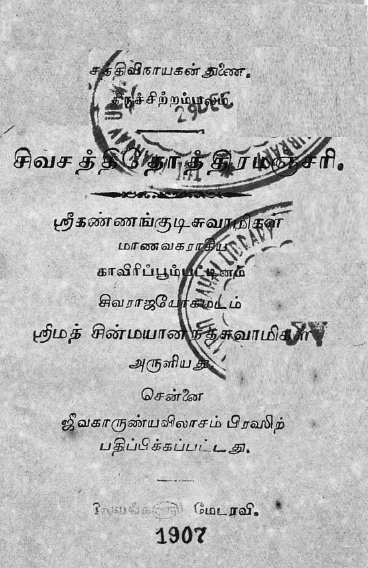 சத்திவிநாயகன் துணை.
திருச்சிற்றம்பலம்
29 DEC
சிவசத்திதோத்திரமஞ்சரி.
ஸ்ரீகண்ணங்குடிசுவாமிகள்
மாணவகராகிய
காவிரிப்பூம்பட்டினம்
சிவராஜயோகமடம்
ஸ்ரீமத் சின்மயானந்தசுவாமிகள்
அருளியது.
சென்னை
ஜீவகாருண்யவிலாசம் பிரஸிற்
பதிப்பிக்கப்பட்டது.
மேடரவி.
1907
LIBRARY